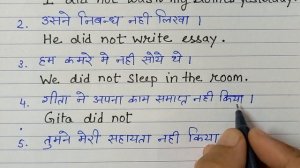 I did not wash my clothes yesterday.
2. उसने निबन्ध नहीं लिखा ।
He did not write essay.
3. हम कमरे मे नही सोये थे ।
We did not sleep in the room.
4. गीता ने अपना काम समाप्त नही किया ।
Gita did not
5. तुमने मेरी सहायता नही किया